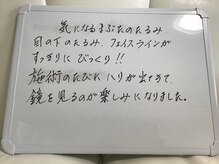 気になるまぶたのたるみ
目の下のたるみ、フェイスラインが
すっきりに びっくり!!
施術のたびに ハリが出てきて、
鏡を見るのが楽しみになりました。